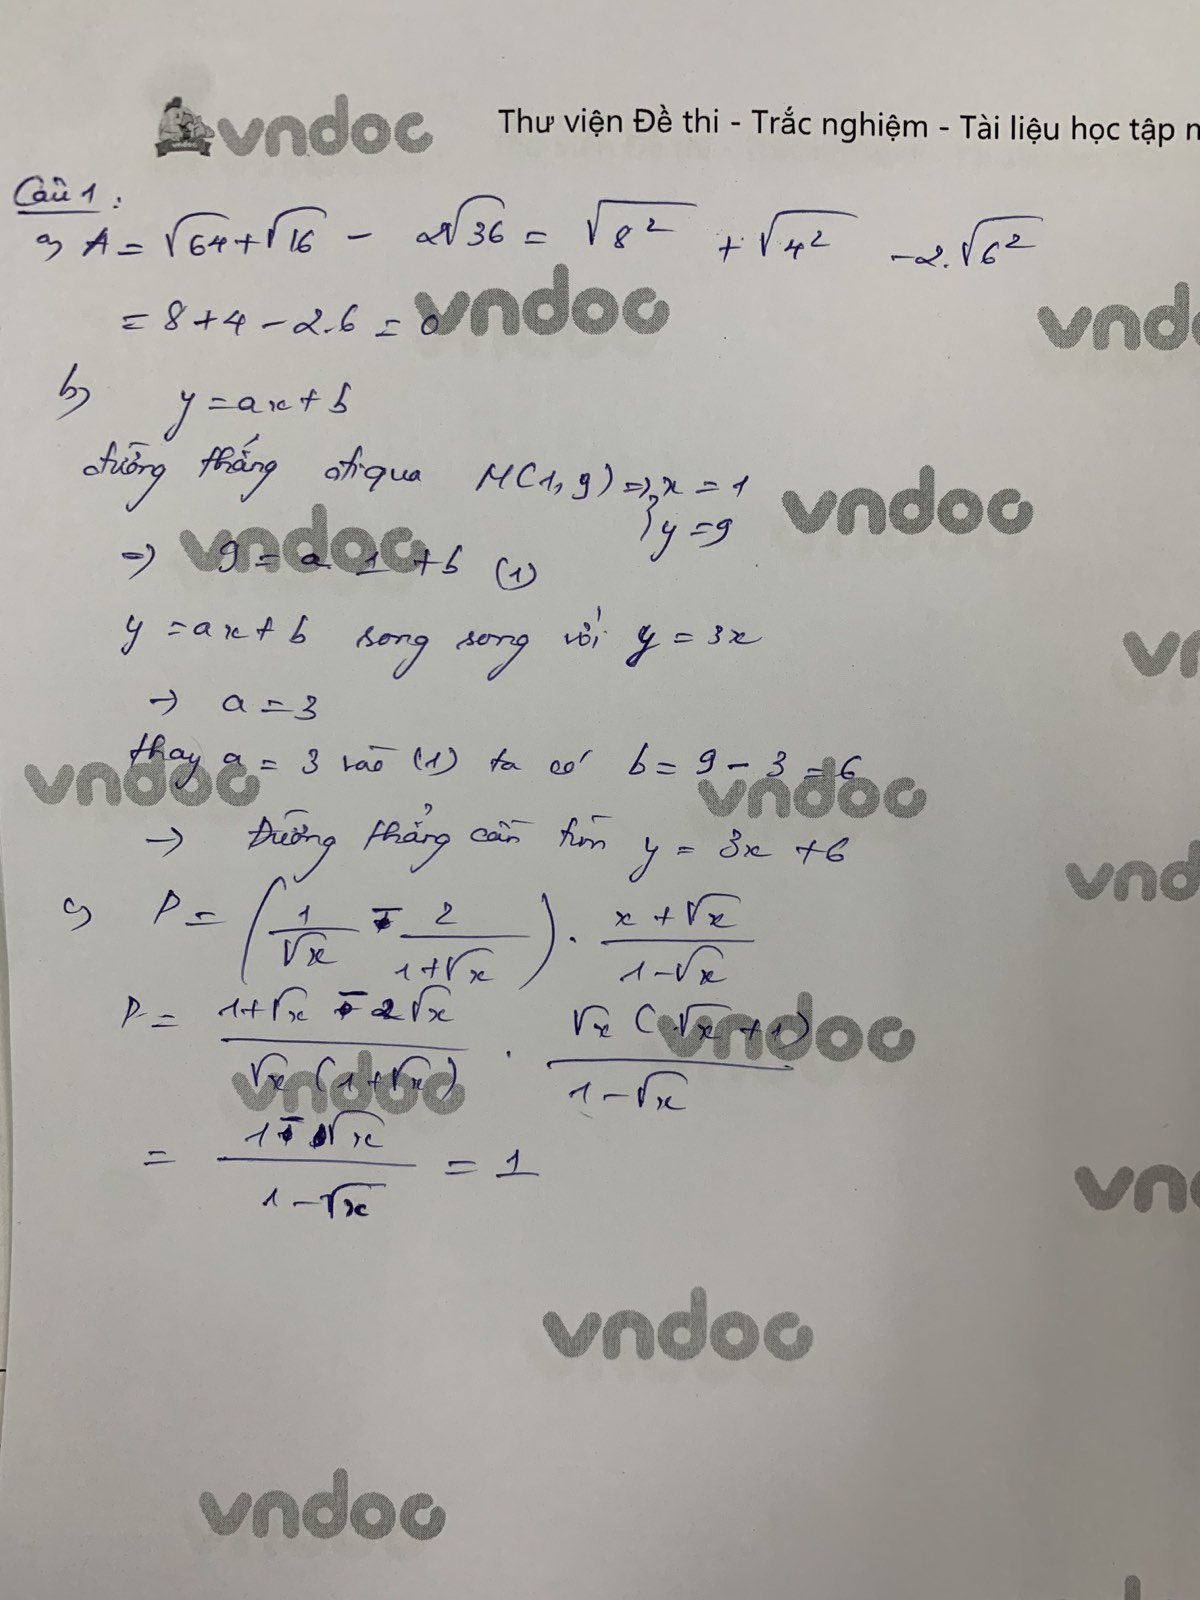 vndoc Thư viện Đề thi - Trắc nghiệm - Tài liệu học tập
Câu 1:
a) A = √64 + √16 - 2√36 = √8² + √4² - 2.√6²
= 8 + 4 - 2.6 = 0
vndoc
vnd
b) y = ax + b
đường thẳng đi qua M(1,9) => { x = 1
y = 9
vndoc
vndoc
=> 9 = a.1 + b (1)
y = ax + b song song với y = 3x
vn
-> a = 3
thay a = 3 vào (1) ta có b = 9 - 3 = 6
vndoc
vndoc
-> Đường thẳng cần tìm y = 3x + 6
vnd
c) P = (1/√x - 2/(1+√x)) . (x+√x)/(1-√x)
P = (1+√x - 2√x)/(√x(1+√x)) . √x(√x+1)/(1-√x)
vndoc
vndoc
= (1-√x)/(1-√x) = 1
vn
vndoc
vndoc